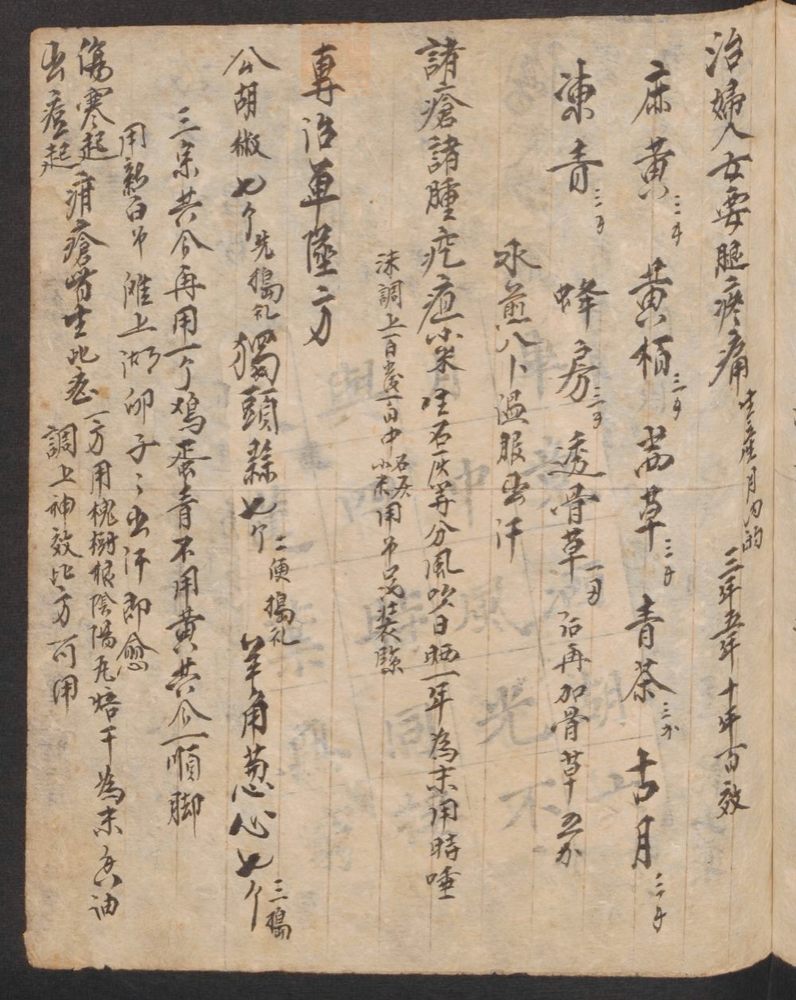 治婦人女要腿疼痛 生產月內的 三年五年十年百效
麻黃三子 黃栢三子 茜草三子 青茶三分 古月三子
凍青三子 蜂房三子 透骨草一刃 后再加骨草五分
水煎八卜溫服出汗
諸瘡諸腫疙疸小米生石灰等分風吹日晒一年為末用時唾
沫調上百歲一百中 石灰小米用布袋裝
專治單墜方
公胡椒七个 先搗礼 獨頭蒜七个 二便搗礼 羊角蔥心七个 三搗
三宗共合再用一个鳰蛋青不用黃共合一順脚
用新白布滩上 卵子々出汗即愈
傷寒起 疳瘡皆生此症 一方用槐樹根陰陽瓦焙干為末香油
出痘起 調上神效此方可用